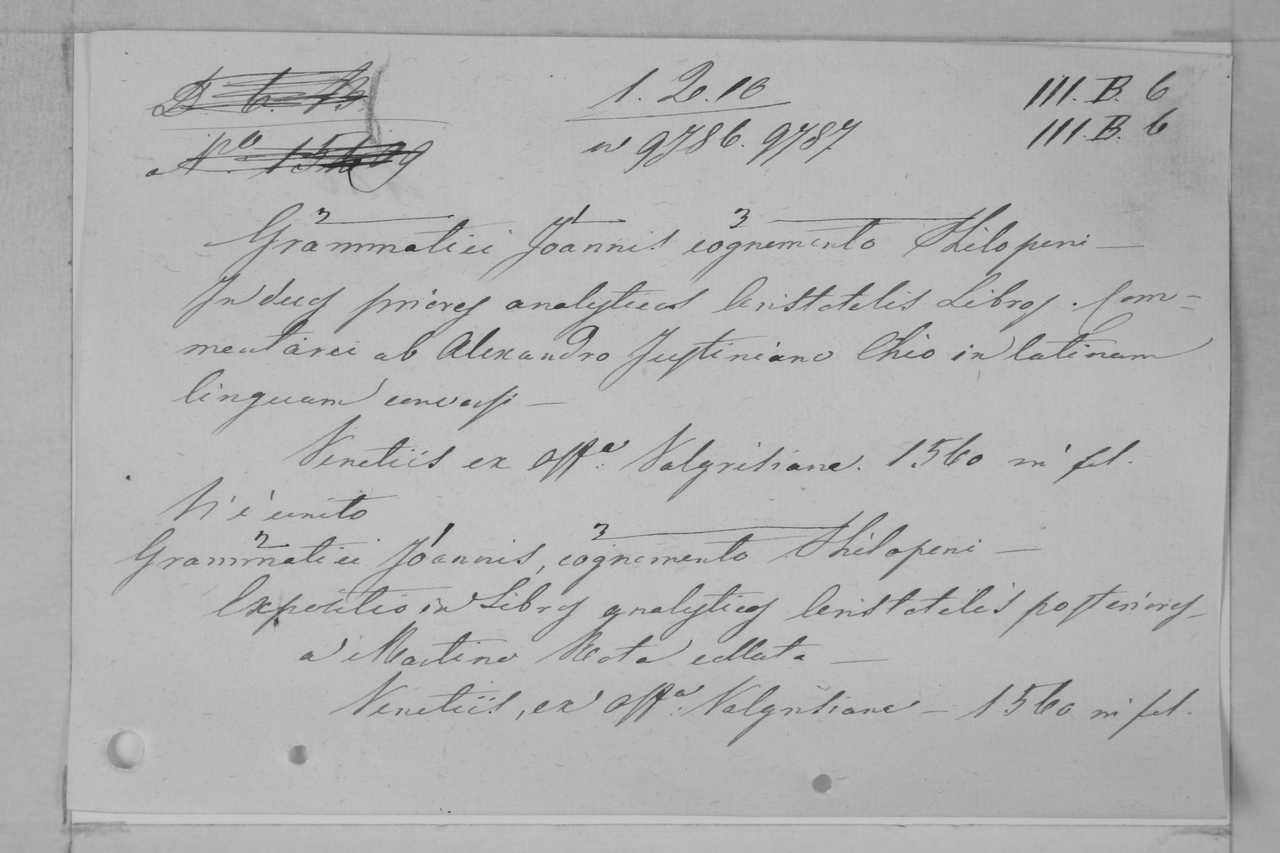 D. 6. 13 1. 2. 10 III. B. 6
Nº. n 9786. 9787 III. B. 6
2 1 3
Grammatici Joannis cognomento Philoponi —
In duos priores analyticos Aristotelis Libros. Com=
mentarii ab Alexandro Justiniano Chio in latinam
linguam conversi —
Venetiis ex Offª. Valgrisiana. 1560 in fol.
V'è unito
2 1 3
Grammatici Joannis, cognomento Philoponi —
Expositio in Libros analyticos Aristotelis posteriores
a Martino Rota collata —
Venetiis, ex Offª. Valgrisiana — 1560 in fol.